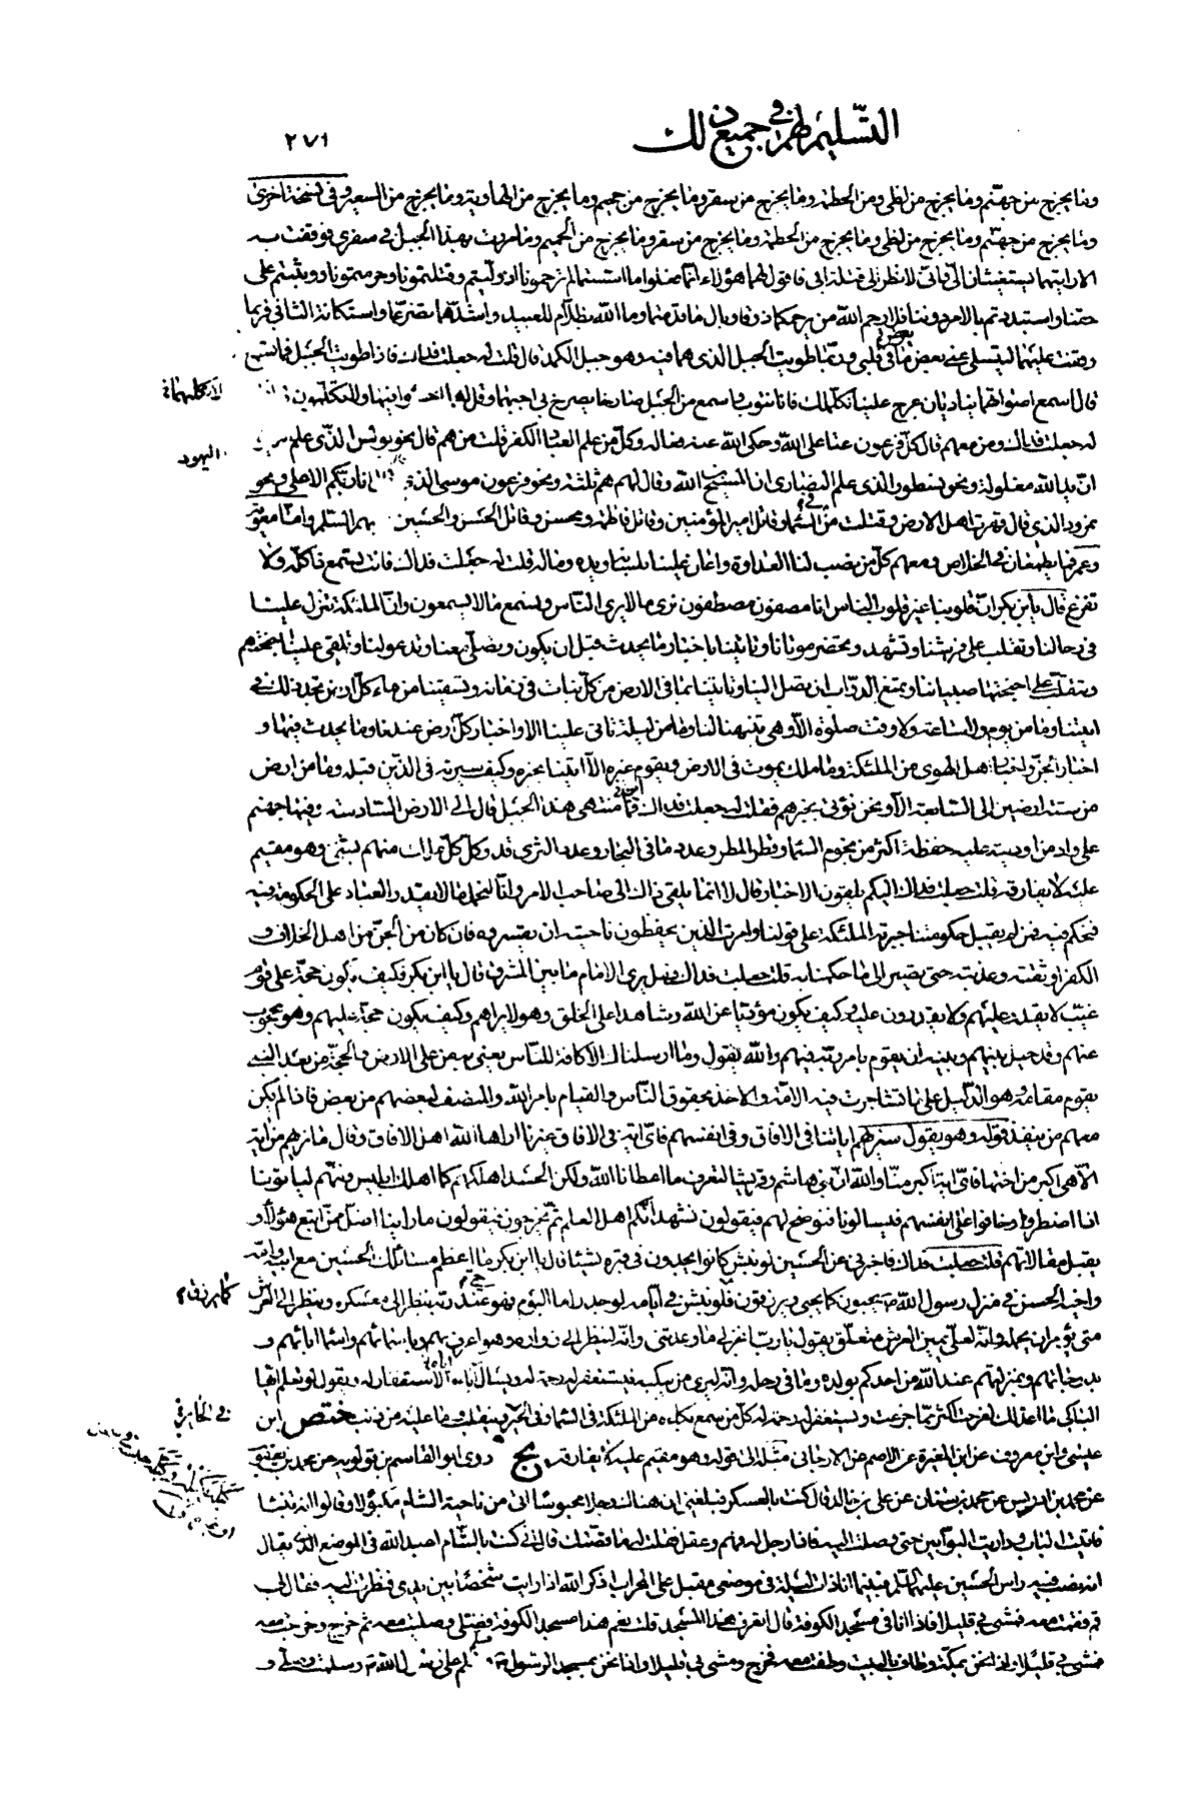 التسليم لهم في جميع ذلك
٢٧١
وما يخرج من جهنم وما يخرج من لظى ومن الحطمة وما يخرج من سقر وما يخرج من جحيم وما يخرج من الهاوية وما يخرج من السعير وفي نسخة اخرى
وما يخرج من جهنم وما يخرج من لظى وما يخرج من الحطمة وما يخرج من سقر وما يخرج من الحميم وما مررت بهذا الجبل في سفري فوقفت به
الا رايتهما يستغيثان الي واني لانظر الى قتلة ابي فاقول لهما هؤلاء انما فعلوا ما استنما لم ترحمونا اذ وليتم وقتلتمونا وحرمتمونا ووثبتم على
حقنا واستبددتم بالامر دوننا فلا رحم الله من يرحمكما ذوقا وبال ما قدمتما وما الله بظلام للعبيد واشدهما تضرعا واستكانة الثاني فربما
وقفت عليهما ليتسلى عني بعض ما في قلبي وربما طويت الجبل الذي هما فيه وهو جبل الكمد قال قلت له جعلت فداك فاذا طويت الجبل فما تسمع
قال اسمع اصواتهما يناديان عرج علينا نكلمك فانا نتوب واسمع من الجبل صارخا يصرخ بي اجبهما وقل لهما اخسئوا فيها ولا تكلمون
لا تكلمهما
له جعلت فداك ومن معهم قال كل فرعون عتا على الله وحكى الله عنه فعاله وكل من علم العباد الكفر قلت من هم قال نحو بولس الذي علم
اليهود
ان يد الله مغلولة ونحو نسطور الذي علم النصارى ان المسيح ابن الله وقال لهم هم ثلثة ونحو فرعون موسى الذي قال انا ربكم الاعلى ونحو
نمرود الذي قال قهرت اهل الارض وقتلت من في السماء وقاتل امير المؤمنين وقاتل فاطمة ومحسن وقاتل الحسن والحسين عليهم السلم واما معوية
وعمر فما يطمعان في الخلاص ومعهم كل من نصب لنا العداوة واعان علينا بلسانه ويده وماله قلت له جعلت فداك فانت تسمع ذا كله ولا
تفزع قال يا بن بكر ان قلوبنا غير قلوب الناس انا مصفون مصطفون نرى ما لا يرى الناس ونسمع ما لا يسمعون وان الملائكة تنزل علينا
في رحالنا وتقلب على فرشنا وتشهد وتحضر موتانا وتاتينا باخبار ما يحدث قبل ان يكون وتصلي معنا وتدعو لنا وتلقي علينا اجنحتهم
وتتقلب على اجنحتها صبياننا وتمنع الدواب ان تصل الينا وتاتينا بما في الارض من كل نبات في زمانه وتسقينا من ماء كل ارض نجد ذلك في
انيتنا وما من يوم ولا ساعة ولا وقت صلوة الا وهي تنبهنا لها وما من ليلة تاتي علينا الا واخبار كل ارض عندنا وما يحدث فيها و
اخبار الجن واخبار اهل الهوى من الملئكة وما ملك يموت في الارض ويقوم غيره الا اتينا بخبره وكيف سيرته في الذين قبله وما من ارض
من ستة ارضين الى السابعة الا ونحن نؤتى بخبرهم فقلت له جعلت فداك فاين منتهى هذا الجبل قال الى الارض السادسة وفيها جهنم
على واد من اوديته عليه حفظة اكثر من نجوم السماء وقطر المطر وعدد ما في البحار وعدد الثرى قد وكل كل ملك منهم بشئ وهو مقيم
عليه لا يفارقه قلت جعلت فداك اليكم يلقون الاخبار قال لا انما يلقى ذاك الى صاحب الامر وانا لنحمل ما لا يقدر العباد على الحكومة فيه
فنحكم فيه فمن لم يقبل حكومتنا جبرته الملئكة على قولنا وامرت الذين يحفظون ناحيته ان يقسروه فان كان من الجن من اهل الخلاف و
الكفر اوثقته وعذبته حتى يصير الى ما حكمنا به قلت جعلت فداك فهل يرى الامام ما بين المشرق قال يا ابن بكر فكيف يكون حجة على قوم
غيب لا يقدر عليهم ولا يقدرون عليه وكيف يكون مؤديا عن الله وشاهدا على الخلق وهو لا يراهم وكيف يكون حجة عليهم وهو محجوب
عنهم وقد حيل بينهم وبينه ان يقوم بامر ربه فيهم والله يقول وما ارسلناك الا كافة للناس يعني به من على الارض والحجة من بعد النبي
يقوم مقامه وهو الدليل على ما تشاجرت فيه الامة والاخذ بحقوق الناس والقيام بامر الله والمنصف لبعضهم من بعض فاذا لم يكن
معهم من ينفذ قوله وهو يقول سنريهم اياتنا في الافاق وفي انفسهم فاي اية في الافاق غيرنا اراها الله اهل الافاق وقال ما نريهم من اية
الا هي اكبر من اختها فاي اية اكبر منا والله ان بني هاشم وقريشا لتعرف ما اعطانا الله ولكن الحسد اهلكهم كما اهلك ابليس وانهم لياتوننا
اذا اضطروا وخافوا على انفسهم فيسالونا فنوضح لهم فيقولون نشهد انكم اهل العلم ثم يخرجون فيقولون ما راينا اضل ممن اتبع هؤلاء و
يقبل مقالاتهم قلت جعلت فداك فاخبرني عن الحسين لو نبش كانوا يجدون في قبره شيئا قال يا ابن بكر ما اعظم مسائلك الحسين مع ابيه وامه
واخيه الحسن في منزل رسول الله ص يحيون كما يحيى ويرزقون فلو نبش في ايامه لوجد واما اليوم فهو حي عند ربه ينظر الى معسكره وينظر الى العرش
كما يرزق
متى يؤمر ان يحمله وانه لعلى يمين العرش متعلق يقول يا رب انجز لي ما وعدتني وانه لينظر الى زواره وهو اعرف بهم وباسمائهم واسماء ابائهم و
بدرجاتهم ومنزلتهم عند الله من احدكم بولده وما في رحله وانه ليرى من يبكيه فيستغفر له رحمة له ويسال اباءه الاستغفار له ويقول لو تعلم ايها
الباكي ما اعد لك لفرحت اكثر مما جزعت ويستغفر له رحمة له كل من سمع بكاءه من الملئكة في السماء وفي الحير وينقلب وما عليه من ذنب ختص ابن
في الحاير
عيسى وابن معروف عن ابن المغيرة عن الاصم عن الارجاني مثله الى قوله وهو مقيم عليه لا يفارقه يج روى ابو القاسم بن قولويه عن محمد بن يعقوب
عن محمد بن ادريس عن محمد بن حسان عن علي بن خالد قال كنت بالعسكر فبلغني ان هناك رجلا محبوسا اتى من ناحية الشام مكبولا وقالوا انه تنبأ
فاتيت الباب وداريت البوابين حتى وصلت اليه فاذا رجل له فهم وعقل فقلت له ما قصتك قال اني كنت بالشام اعبد الله في الموضع الذي يقال
انه نصب فيه راس الحسين عليه السلم فبينما انا ذات ليلة في موضعي مقبل على المحراب اذكر الله اذ رايت شخصا بين يدي فنظرت اليه فقال لي
قم فقمت معه فمشى بي قليلا فاذا انا في مسجد الكوفة قال اتعرف هذا المسجد قلت نعم هذا مسجد الكوفة فصلى وصليت معه ثم خرج وخرجت معه
فمشى بي قليلا فاذا نحن بمكة وطاف بالبيت وطفت معه فخرج ومشى بي قليلا واذا نحن بمسجد الرسول فسلم على رسول الله وسلمت وصلى و